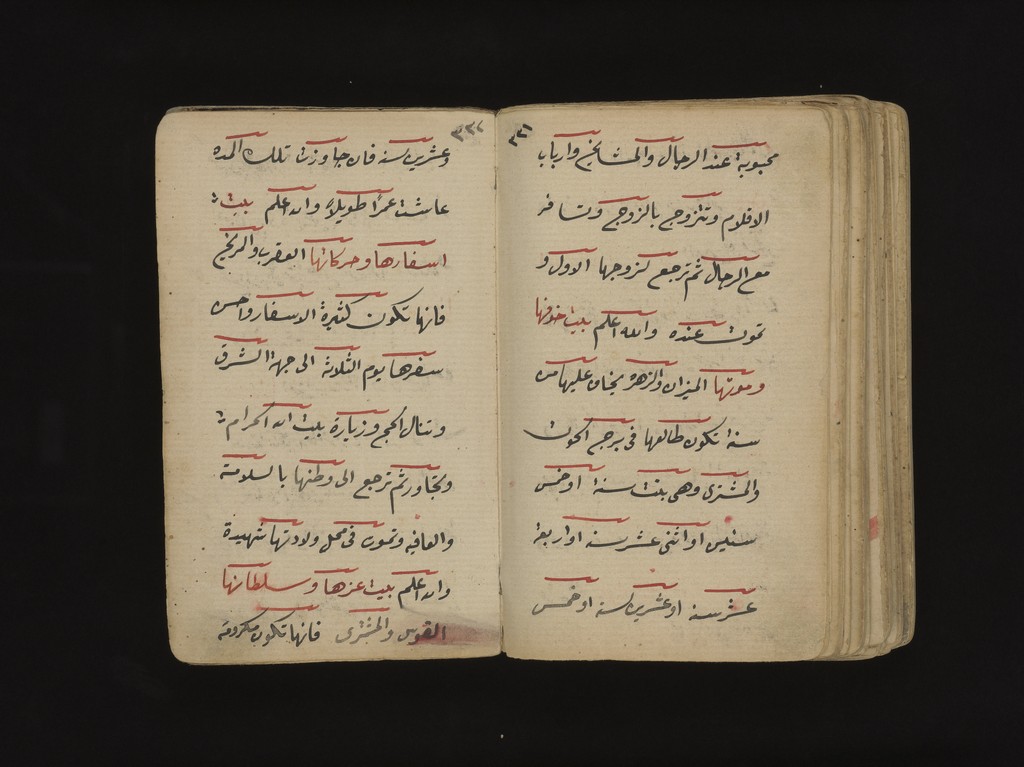 ٣٣١
محبوبة عند الرجال والمشايخ وارباب
الاقلام وتتزوج بالزوج وتسافر
مع الرجال ثم ترجع لزوجها الاول و
تموت عنده والله اعلم بيت خوفها
وموتها الميزان والزهره يخاف عليها من
سنة تكون طالعها فى برج الحوت
والمشترى وهى بنت سنة اوخمس
سنين او اثنى عشر سنه او اربعة
عشر سنه او عشرين سنة او خمس
٣٣٢
وعشرين سنه فان جاوزت تلك المده
عاشت عمرا طويلا والله اعلم بيت
اسفارها وحركاتها العقرب والمريخ
فانها تكون كثيرة الاسفار واحسن
سفرها يوم الثلاثة الى جهة الشرق
وتنال الحج وزيارة بيت الله الحرام
وتجاور ثم ترجع الى وطنها بالسلامة
والعافيه وتموت فى محل ولادتها شهيدة
والله اعلم بيت عزها وسلطانها
القوس والمشترى فانها تكون مكرومة